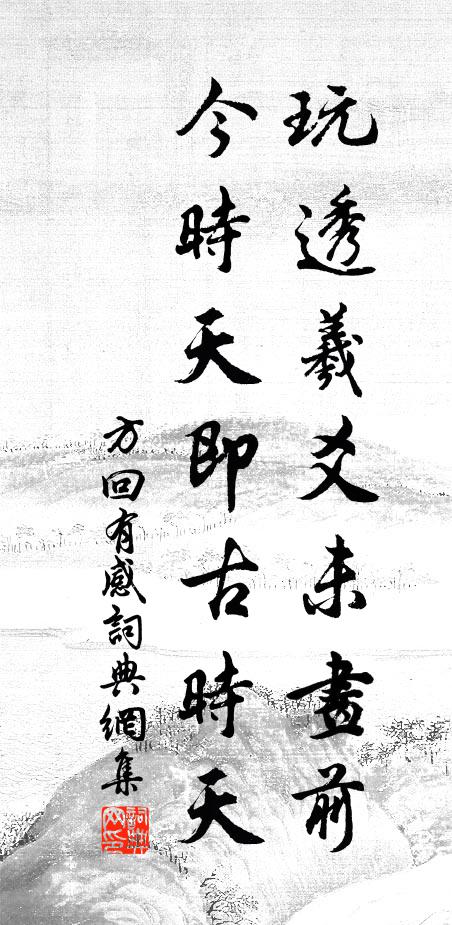 玩透羲爻未畫前
今時天即古時天
方回有感詞典網集